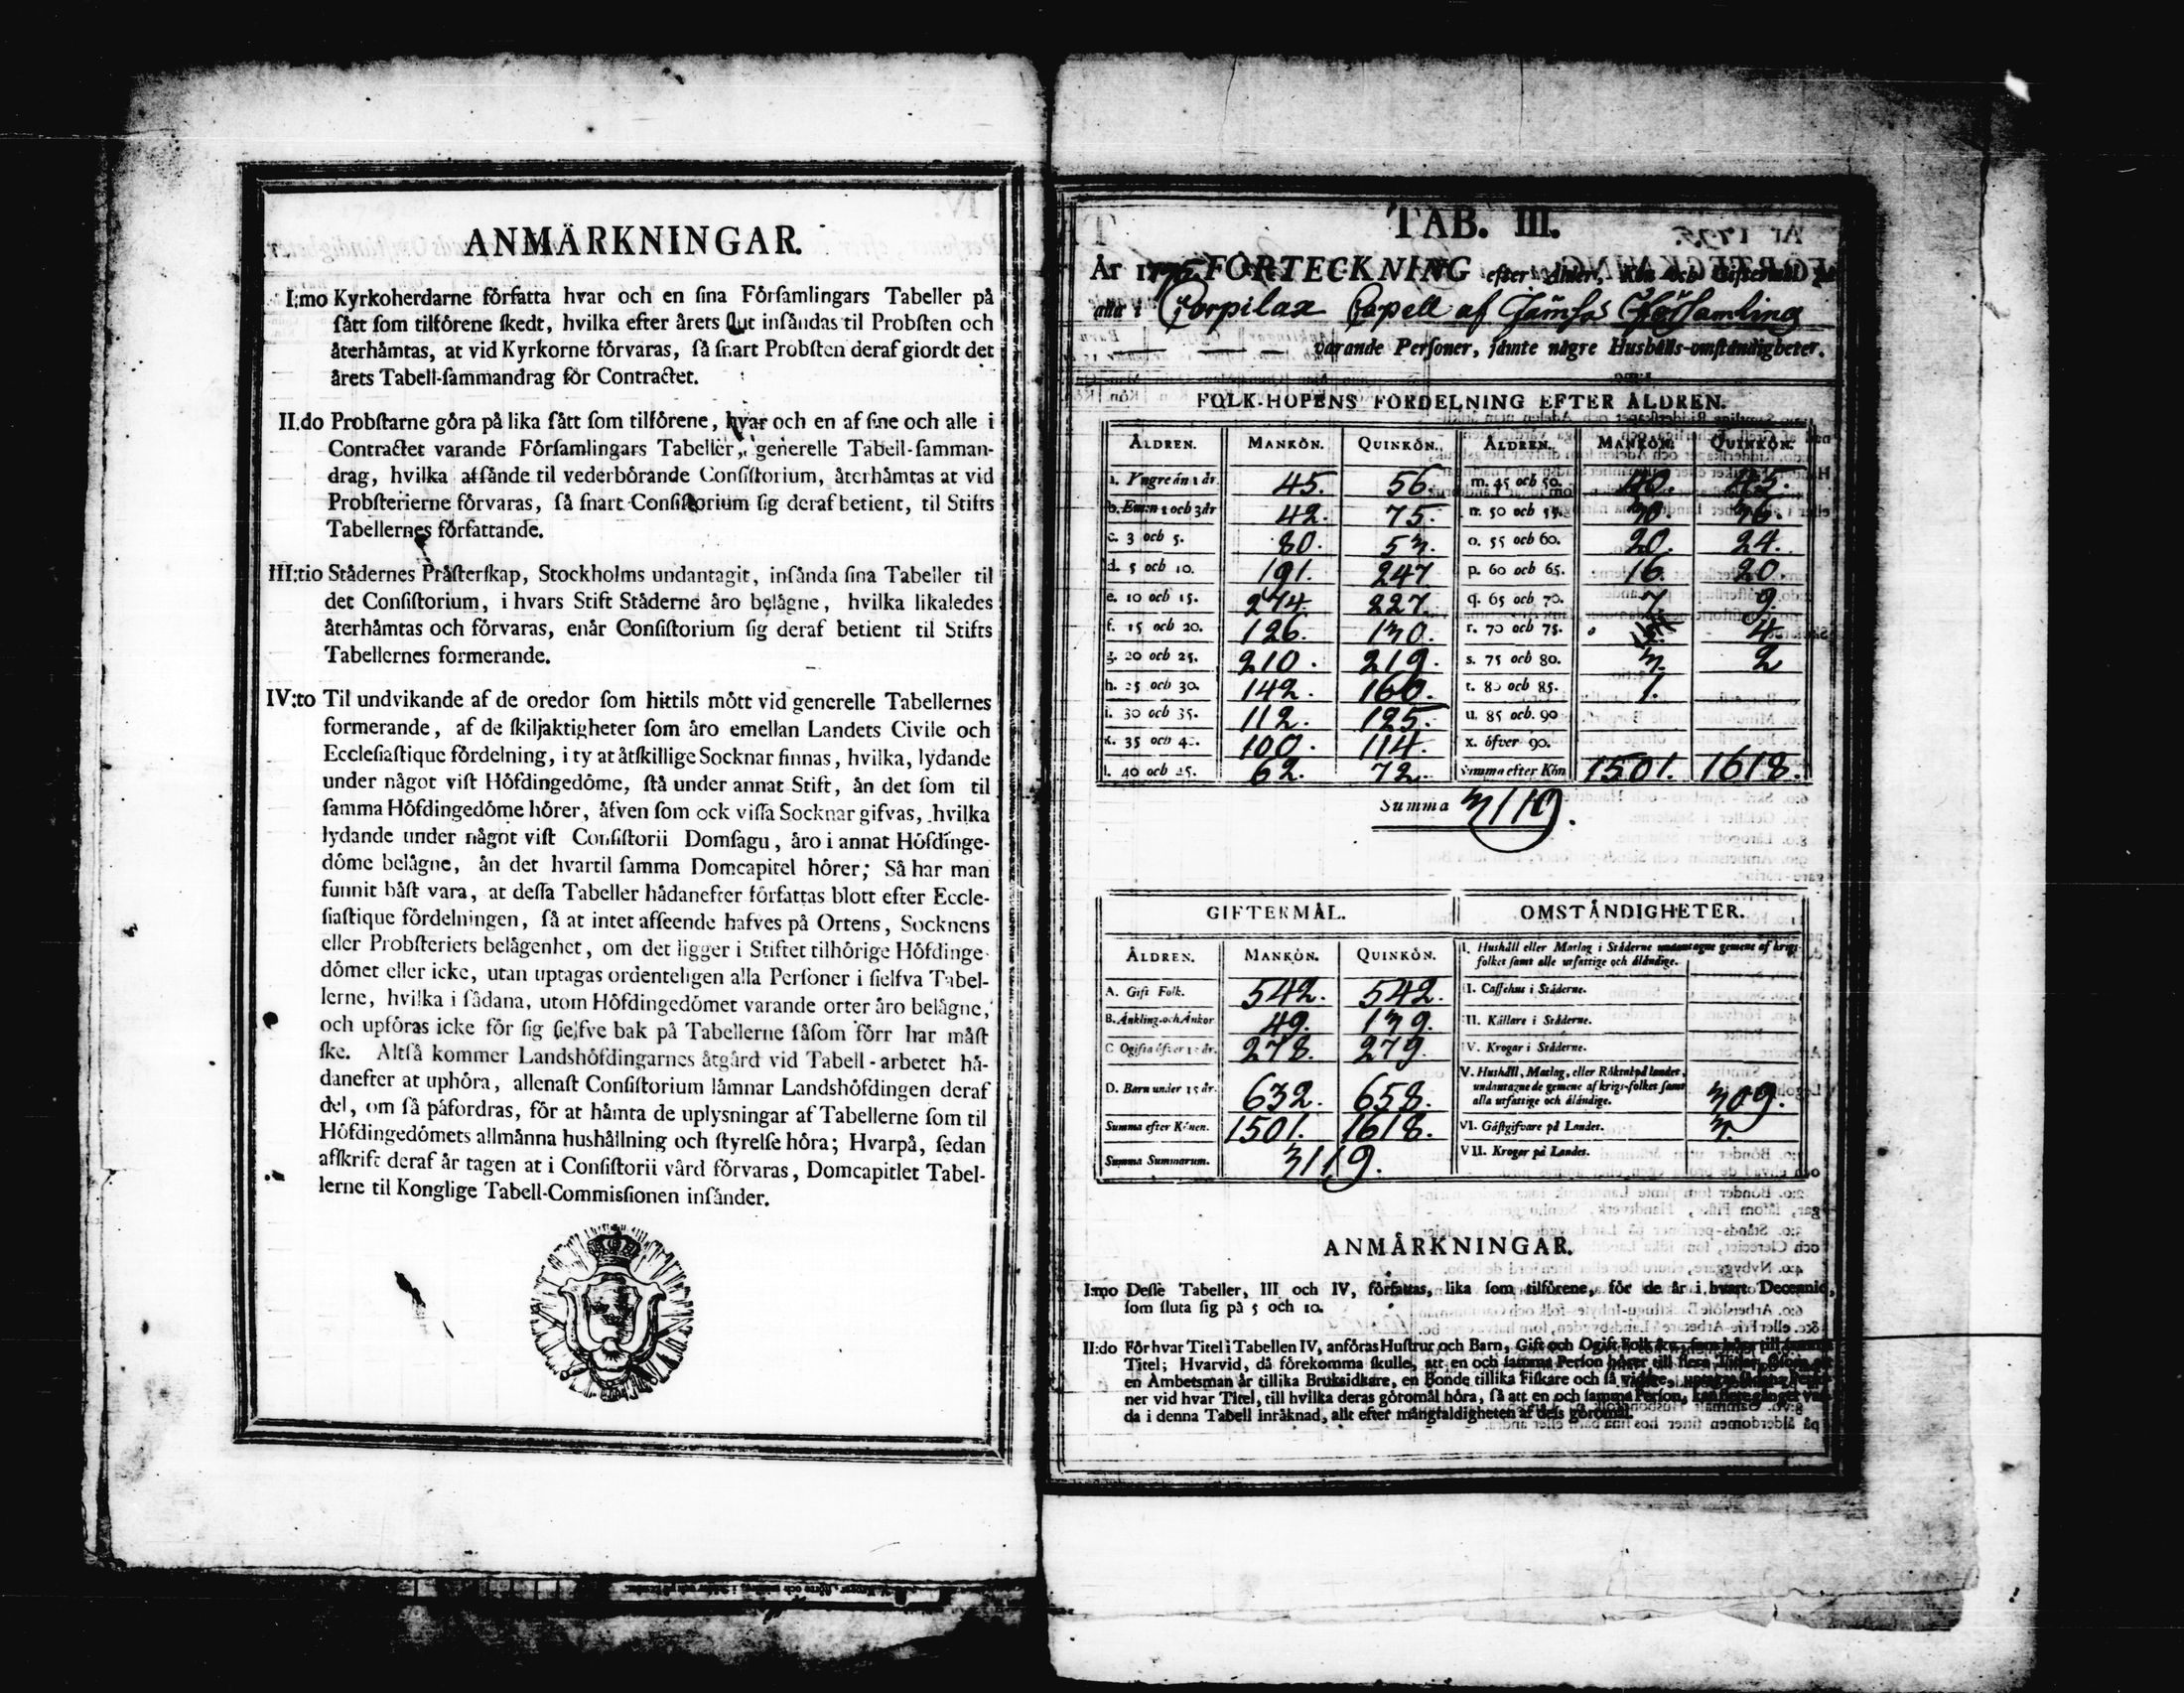 ANMÄRKNINGAR.
I:mo Kyrkoherdarne författa hvar och en sina Församlingars Tabeller på
sått som tilförene skedt, hvilka efter årets slut insåndas til Probsten och
återhåmtas, at vid Kyrkorne förvaras, så snart Probsten deraf giordt det
årets Tabell-sammandrag för Contractet.
II.do Probstarne göra på lika sått som tilförene, hvar och en af sine och alle i
Contractet varande Församlingars Tabeller, generelle Tabell-samman-
drag, hvilka afsånde til vederbörande Consistorium, återhåmtas at vid
Probsterierne förvaras, så snart Consistorium sig deraf betient, til Stifts
Tabellernes författande.
III:tio Städernes Pråsterskap, Stockholms undantagit, insånda sina Tabeller til
det Consistorium, i hvars Stift Ståderne åro belågne, hvilka likaledes
återhåmtas och förvaras, enår Consistorium sig deraf betient til Stifts
Tabellernes formerande.
IV:to Til undvikande af de oredor som hittils mött vid generelle Tabellernes
formerande, af de skiljaktigheter som åro emellan Landets Civile och
Ecclesiastique fördelning, i ty at åtskillige Socknar finnas, hvilka, lydande
under något vist Höfdingedöme, stå under annat Stift, ån det som til
samma Höfdingedöme hörer, åfven som ock vissa Socknar gifvas, hvilka
lydande under något vist Consistorii Domsagu, åro i annat Höfdinge-
döme belågne, ån det hvartil samma Domcapitel hörer; Så har man
funnit båst vara, at dessa Tabeller hådanefter författas blott efter Eccle-
siastique fördelningen, så at intet afseende hafves på Ortens, Socknens
eller Probsteriets belågenhet, om det ligger i Stiftet tilhörige Höfdinge-
dömet eller icke, utan uptagas ordenteligen alla Personer i sielfva Tabel-
lerne, hvilka i sådana, utom Höfdingedömet varande orter åro belågne,
och upföras icke för sig sielfve bak på Tabellerne såsom förr har måst
ske. Altså kommer Landshöfdingarnes åtgård vid Tabell-arbetet hå-
danefter at uphöra, allenast Consistorium låmnar Landshöfdingen deraf
del, om så påfordras, för at håmta de uplysningar af Tabellerne som til
Höfdingedömets allmånna hushållning och styrelse höra; Hvarpå, sedan
afskrift deraf år tagen at i Consistorii vård förvaras, Domcapitlet Tabel-
lerne til Konglige Tabell-Commissionen insånder.
TAB. III.
År 1795. FÖRTECKNING efter Ålder, Kön och Giftermål på
alla i Corpilax Capell af Jämsä Församling
varande Personer, jåmte någre Hushålls-omståndigheter.
FOLK-HOPENS FÖRDELNING EFTER ÅLDREN.
ÅLDREN. MANKÖN. QUINKÖN. ÅLDREN. MANKÖN. QUINKÖN.
a. Yngre ån 1 år. 45. 56. m. 45 och 50. 40. 45.
b. Emen 1 och 3 år 42. 75. n. 50 och 55. 30. 36.
c. 3 och 5. 80. 53. o. 55 och 60. 20. 24.
d. 5 och 10. 191. 247 p. 60 och 65. 16. 20.
e. 10 och 15. 274. 227. q. 65 och 70. 7. 9.
f. 15 och 20. 126. 130. r. 70 och 75. 4.
g. 20 och 25. 210. 219. s. 75 och 80. 3. 2
h. 25 och 30. 142. 160. t. 80 och 85. 1.
i. 30 och 35. 112. 125. u. 85 och. 90
k. 35 och 40. 100. 114. x. öfver 90.
l. 40 och 45. 62. 72. Summa efter Kön 1501. 1618.
Summa 3119.
GIFTERMÅL. OMSTÅNDIGHETER.
ÅLDREN. MANKÖN. QUINKÖN.
I. Hushåll eller Matlag i Ståderne undantagne gemene af krigs-
folket samt alle utfattige och ålåndige.
A. Gift Folk. 542. 542. II. Caffehus i Ståderne.
B. Änkling. och Änkor 49. 139. III. Kållare i Ståderne.
C Ogifta öfver 15 år. 278. 279. IV. Krogar i Ståderne.
D. Barn under 15 år. 632. 658. V. Hushåll, Matlag, eller Röktal på landet,
undantagne de gemene af krigs-folket samt
alla utfattige och ålåndige. 309.
Summa efter Könen. 1501. 1618. VI. Gåstgifvare på Landet. 3.
Summa Summarum. 3119. VII. Krogar på Landet.
ANMÄRKNINGAR.
I:mo Desse Tabeller, III och IV, författas, lika som tilförene, för de år i hvart Decennio,
som sluta sig på 5 och 10.
II:do För hvar Titel i Tabellen IV, anföras Hustrur och Barn, Gift och Ogift Folk
Titel; Hvarvid, då förekomma skulle, att en och samma Person hörer till flera Titlar,
en Ambetsman år tillika Bruksidkare, en Bonde tillika Fiskare och så vidare,
ner vid hvar Titel, till hvilka deras göromål höra, så att en och samma Person,
da i denna Tabell intåknad, allt efter mångfaldigheten af dess göromål.